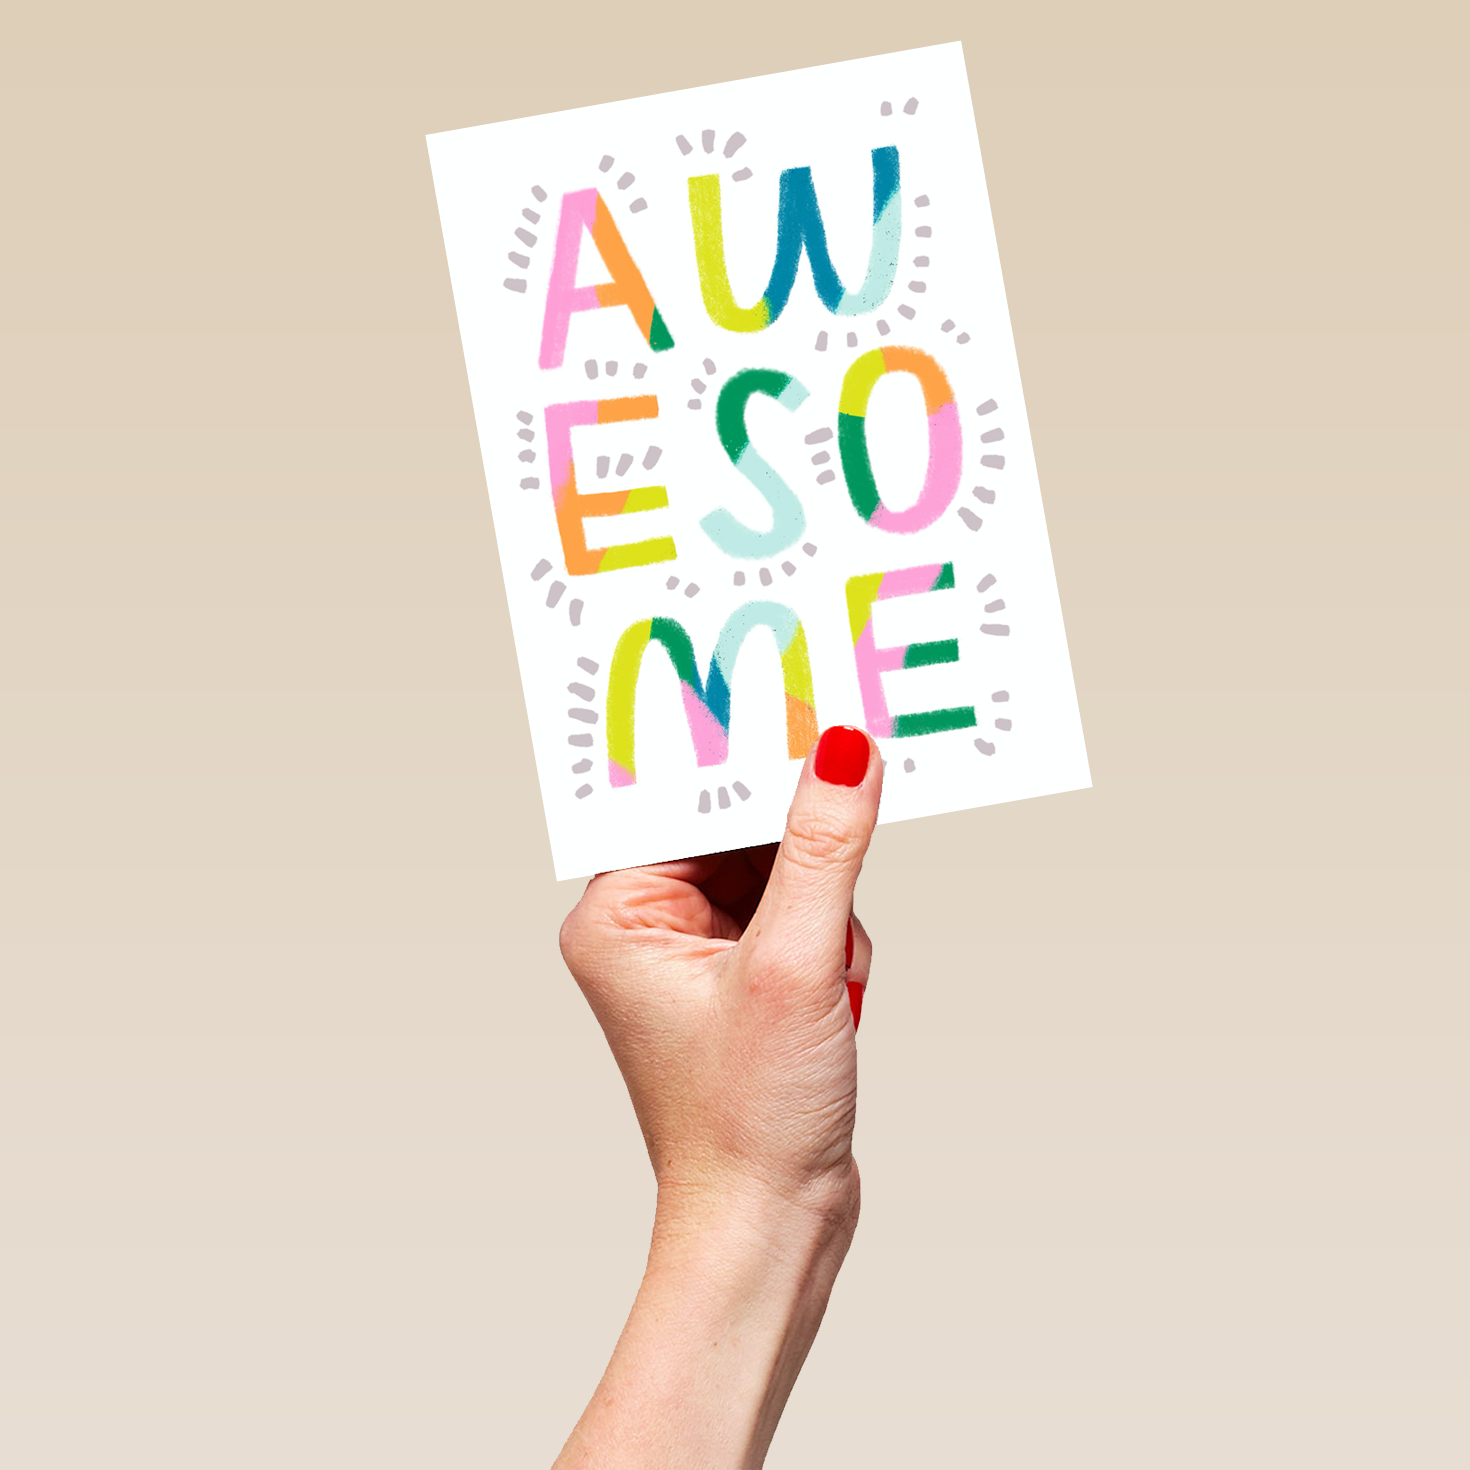 AW
ESO
ME